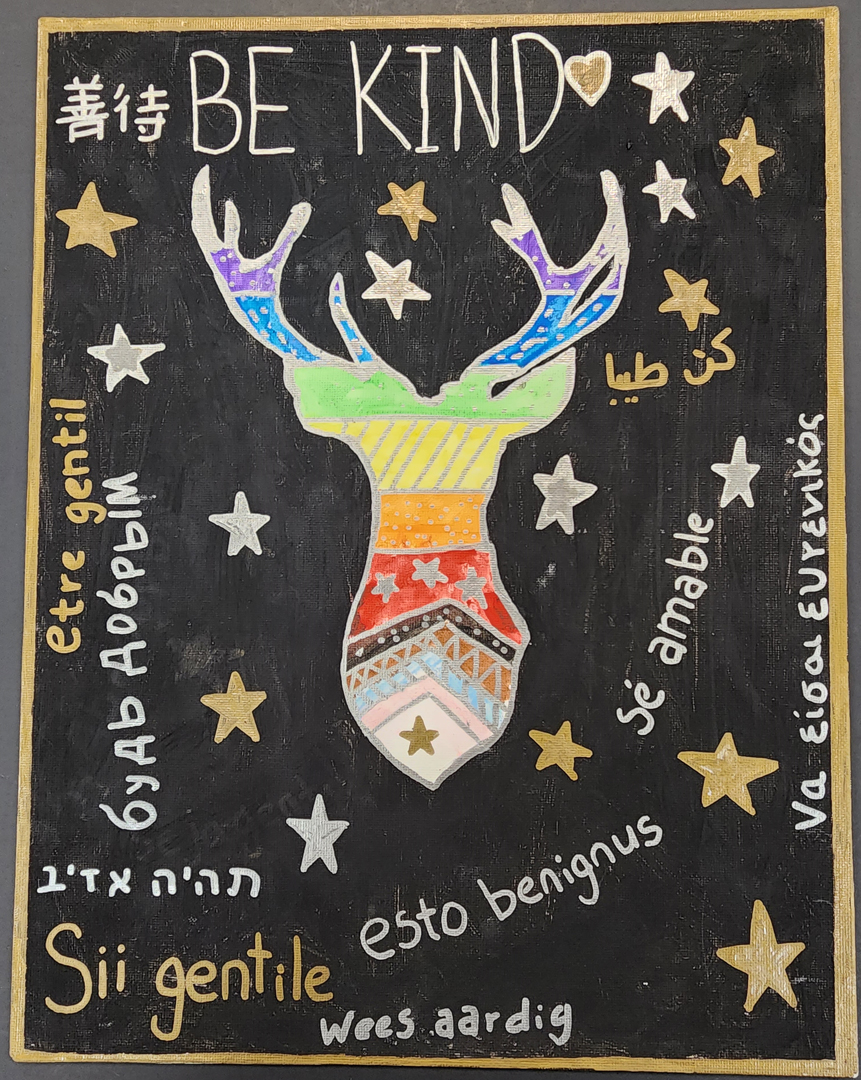 BE KIND
善待
كن طيبا
etre gentil
будь добрым
sé amable
Να είσαι ευγενικός
תהיה אדיב
esto benignus
Sii gentile
Wees aardig